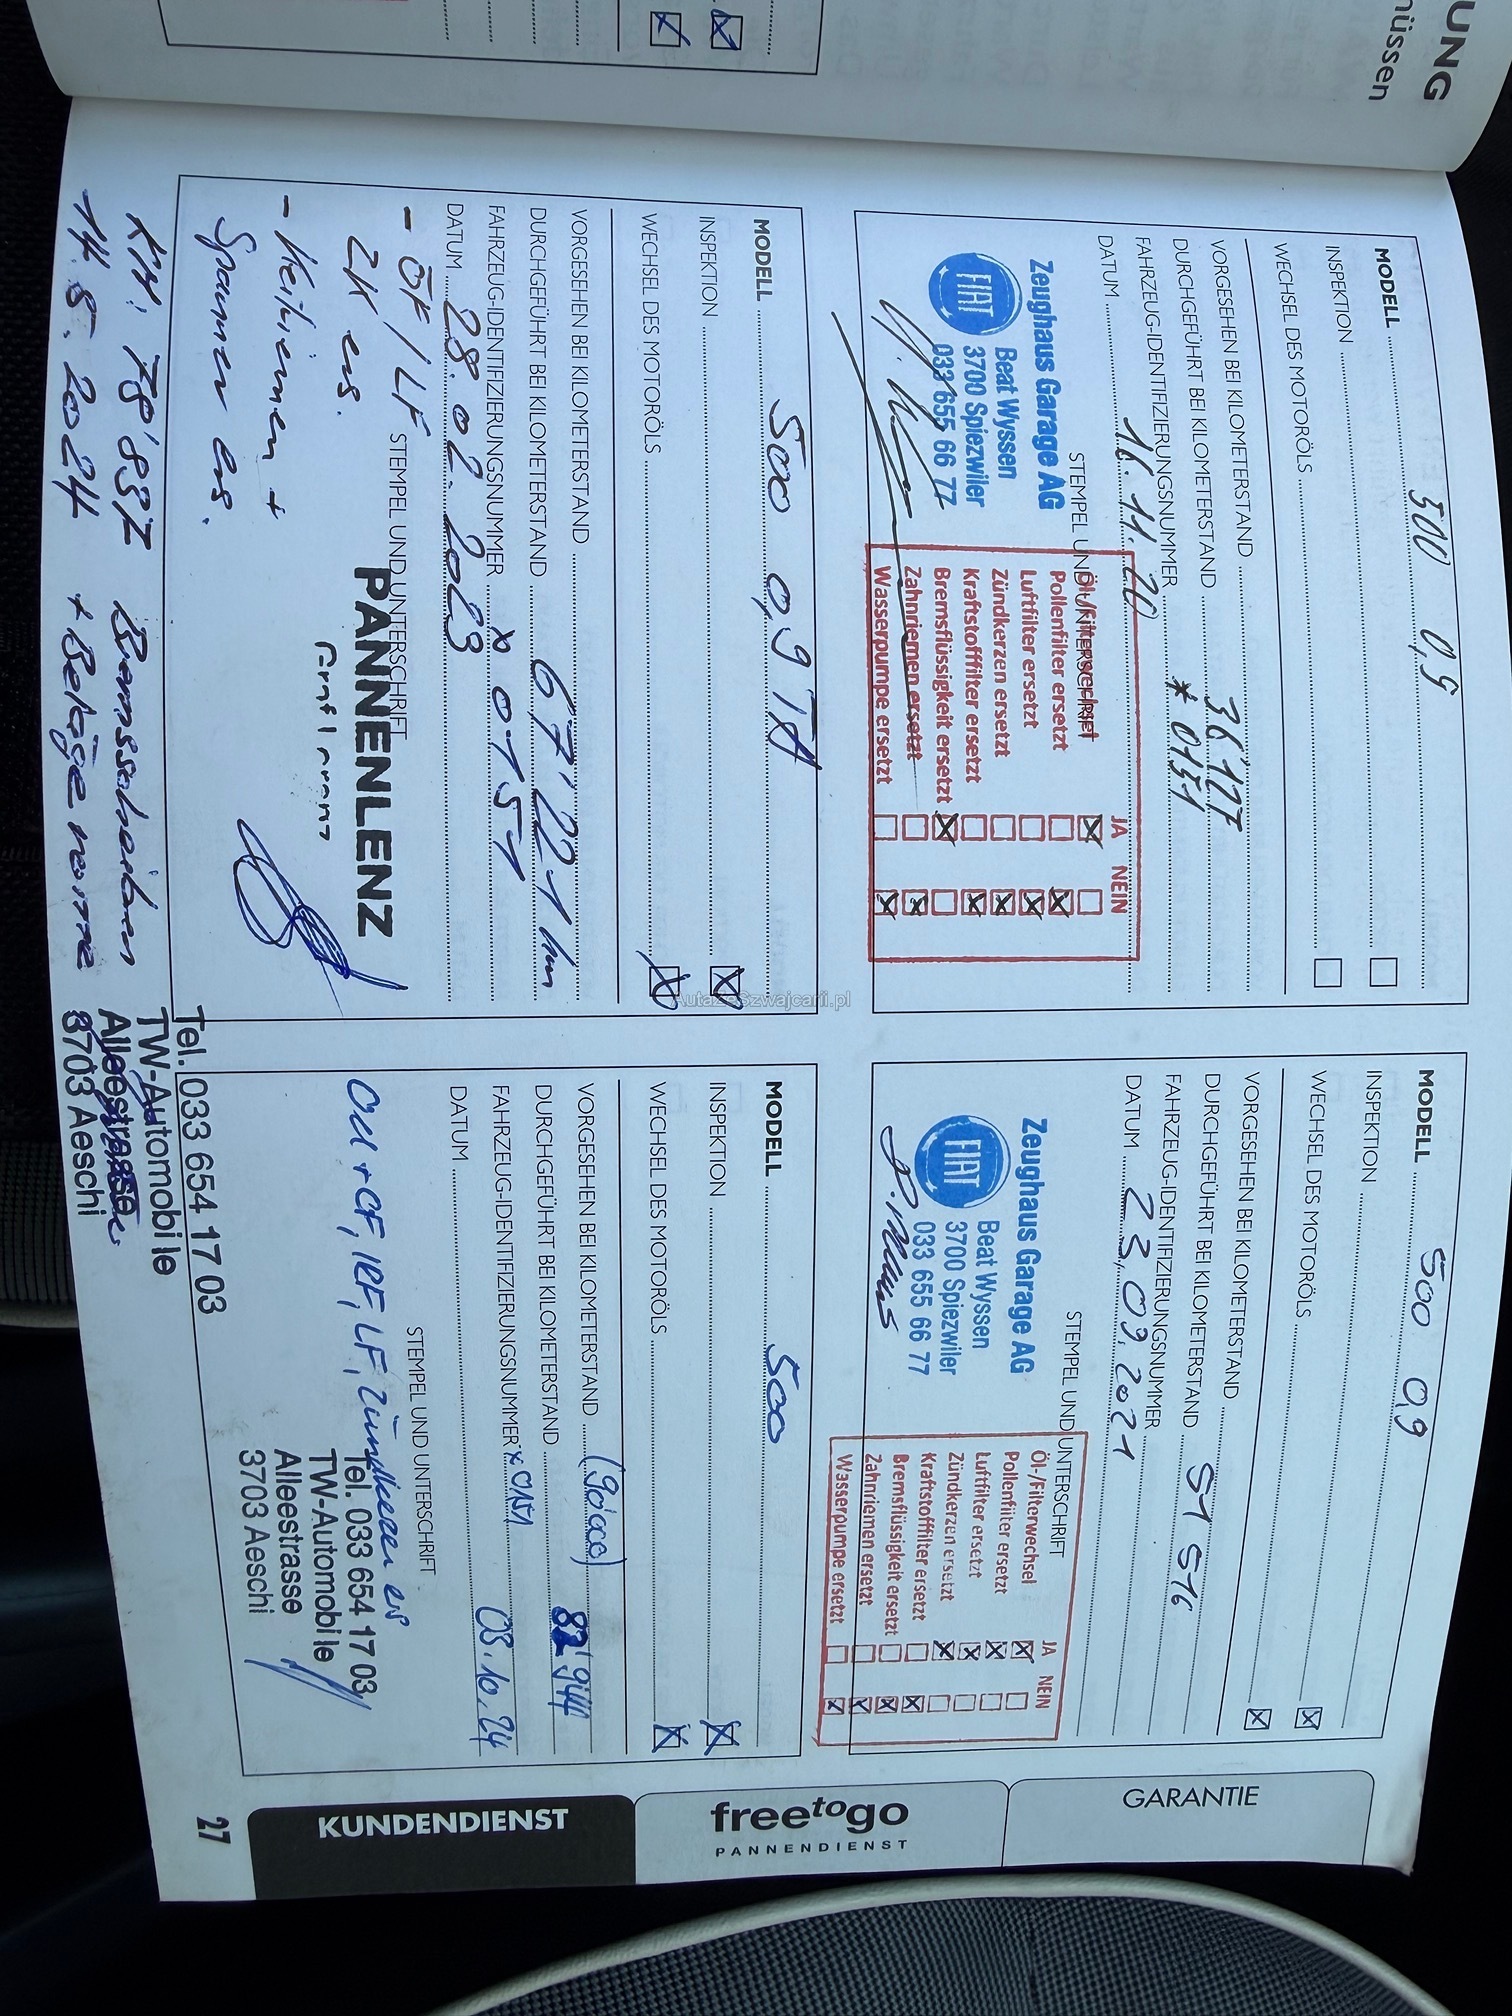 UNG
müssen
MODELL 500 0,9
INSPEKTION
WECHSEL DES MOTORÖLS
VORGESEHEN BEI KILOMETERSTAND
DURCHGEFÜHRT BEI KILOMETERSTAND 36'127
FAHRZEUG-IDENTIFIZIERUNGSNUMMER * 0151
DATUM 16.11.20
STEMPEL UND UNTERSCHRIFT
Zeughaus Garage AG
FIAT
Beat Wyssen
3700 Spiezwiler
033 655 66 77
JA NEIN
Öl-/Filterwechsel
Pollenfilter ersetzt
Luftfilter ersetzt
Zündkerzen ersetzt
Kraftstofffilter ersetzt
Bremsflüssigkeit ersetzt
Zahnriemen ersetzt
Wasserpumpe ersetzt
MODELL 500 0,9
INSPEKTION
WECHSEL DES MOTORÖLS
VORGESEHEN BEI KILOMETERSTAND
DURCHGEFÜHRT BEI KILOMETERSTAND 51 516
FAHRZEUG-IDENTIFIZIERUNGSNUMMER
DATUM 23.09.2021
STEMPEL UND UNTERSCHRIFT
Zeughaus Garage AG
FIAT
Beat Wyssen
3700 Spiezwiler
033 655 66 77
JA NEIN
Öl-/Filterwechsel
Pollenfilter ersetzt
Luftfilter ersetzt
Zündkerzen ersetzt
Kraftstofffilter ersetzt
Bremsflüssigkeit ersetzt
Zahnriemen ersetzt
Wasserpumpe ersetzt
MODELL 500 0,9 TA
INSPEKTION
WECHSEL DES MOTORÖLS
VORGESEHEN BEI KILOMETERSTAND
DURCHGEFÜHRT BEI KILOMETERSTAND 67'221 km
FAHRZEUG-IDENTIFIZIERUNGSNUMMER x 0151
DATUM 28.02.2023
STEMPEL UND UNTERSCHRIFT
- ÖF / LF
ZK ers.
- Keilriemen +
Spanner ers.
PANNENLENZ
KM: 78'897 Bremsscheiben
14.5.2024 + Beläge vorne
Tel. 033 654 17 03
TW-Automobile
Alleestrasse
3703 Aeschi
MODELL 500
INSPEKTION
WECHSEL DES MOTORÖLS
VORGESEHEN BEI KILOMETERSTAND (90'000)
DURCHGEFÜHRT BEI KILOMETERSTAND 82'944
FAHRZEUG-IDENTIFIZIERUNGSNUMMER x 0151
DATUM 03.10.24
STEMPEL UND UNTERSCHRIFT
Öl + ÖF, IRF, LF, Zündkerzen ers
Tel. 033 654 17 03
TW-Automobile
Alleestrasse
3703 Aeschi
GARANTIE
freetogo
PANNENDIENST
KUNDENDIENST
27
AutazeSzwajcarii.pl